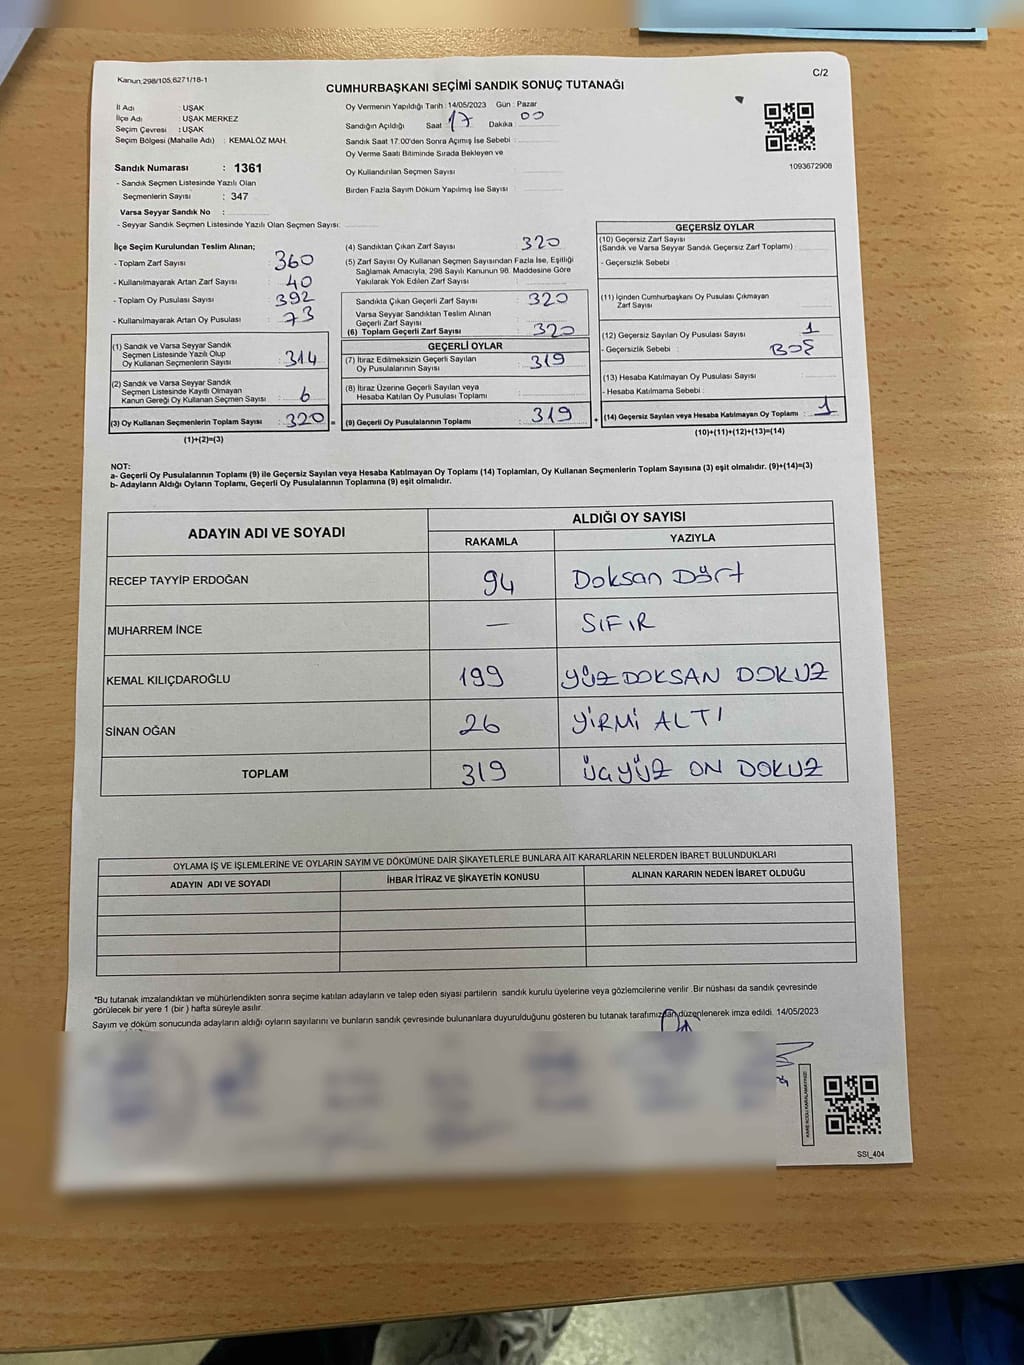 Kanun.298/105,6271/18-1
C/2
CUMHURBAŞKANI SEÇİMİ SANDIK SONUÇ TUTANAĞI
İl Adı : UŞAK
İlçe Adı : UŞAK MERKEZ
Seçim Çevresi : UŞAK
Seçim Bölgesi (Mahalle Adı) : KEMALÖZ MAH.
Sandık Numarası : 1361
- Sandık Seçmen Listesinde Yazılı Olan
Seçmenlerin Sayısı : 347
Varsa Seyyar Sandık No :
- Seyyar Sandık Seçmen Listesinde Yazılı Olan Seçmen Sayısı:
Oy Vermenin Yapıldığı Tarih : 14/05/2023 Gün : Pazar
Sandığın Açıldığı Saat : 17 Dakika : 00
Sandık Saat 17:00'den Sonra Açımış İse Sebebi :
Oy Verme Saati Bitiminde Sırada Bekleyen ve
Oy Kullandırılan Seçmen Sayısı
Birden Fazla Sayım Döküm Yapılmış İse Sayısı
1093672908
İlçe Seçim Kurulundan Teslim Alınan;
- Toplam Zarf Sayısı : 360
- Kullanılmayarak Artan Zarf Sayısı : 40
- Toplam Oy Pusulası Sayısı : 392
- Kullanılmayarak Artan Oy Pusulası : 73
(1) Sandık ve Varsa Seyyar Sandık
Seçmen Listesinde Yazılı Olup
Oy Kullanan Seçmenlerin Sayısı : 314
(2) Sandık ve Varsa Seyyar Sandık
Seçmen Listesinde Kayıtlı Olmayan
Kanun Gereği Oy Kullanan Seçmen Sayısı : 6
(3) Oy Kullanan Seçmenlerin Toplam Sayısı : 320 =
(1)+(2)=(3)
(4) Sandıktan Çıkan Zarf Sayısı : 320
(5) Zarf Sayısı Oy Kullanan Seçmen Sayısından Fazla İse, Eşitliği
Sağlamak Amacıyla, 298 Sayılı Kanunun 98. Maddesine Göre
Yakılarak Yok Edilen Zarf Sayısı :
Sandıkta Çıkan Geçerli Zarf Sayısı : 320
Varsa Seyyar Sandıktan Teslim Alınan
Geçerli Zarf Sayısı
(6) Toplam Geçerli Zarf Sayısı : 320
GEÇERLİ OYLAR
(7) İtiraz Edilmeksizin Geçerli Sayılan
Oy Pusulalarının Sayısı : 319
(8) İtiraz Üzerine Geçerli Sayılan veya
Hesaba Katılan Oy Pusulası Toplamı :
(9) Geçerli Oy Pusulalarının Toplamı : 319 +
GEÇERSİZ OYLAR
(10) Geçersiz Zarf Sayısı
(Sandık ve Varsa Seyyar Sandık Geçersiz Zarf Toplamı) :
- Geçersizlik Sebebi :
(11) İçinden Cumhurbaşkanı Oy Pusulası Çıkmayan
Zarf Sayısı :
(12) Geçersiz Sayılan Oy Pusulası Sayısı : 1
- Geçersizlik Sebebi : BOŞ
(13) Hesaba Katılmayan Oy Pusulası Sayısı :
- Hesaba Katılmama Sebebi :
(14) Geçersiz Sayılan veya Hesaba Katılmayan Oy Toplamı : 1
(10)+(11)+(12)+(13)=(14)
NOT:
a- Geçerli Oy Pusulalarının Toplamı (9) ile Geçersiz Sayılan veya Hesaba Katılmayan Oy Toplamı (14) Toplamları, Oy Kullanan Seçmenlerin Toplam Sayısına (3) eşit olmalıdır. (9)+(14)=(3)
b- Adayların Aldığı Oyların Toplamı, Geçerli Oy Pusulalarının Toplamına (9) eşit olmalıdır.
ADAYIN ADI VE SOYADI
ALDIĞI OY SAYISI
RAKAMLA YAZIYLA
RECEP TAYYİP ERDOĞAN 94 Doksan Dört
MUHARREM İNCE — SIFIR
KEMAL KILIÇDAROĞLU 199 YÜZ DOKSAN DOKUZ
SİNAN OĞAN 26 YİRMİ ALTI
TOPLAM 319 ÜÇ YÜZ ON DOKUZ
OYLAMA İŞ VE İŞLEMLERİNE VE OYLARIN SAYIM VE DÖKÜMÜNE DAİR ŞİKAYETLERLE BUNLARA AİT KARARLARIN NELERDEN İBARET BULUNDUKLARI
ADAYIN ADI VE SOYADI İHBAR İTİRAZ VE ŞİKAYETİN KONUSU ALINAN KARARIN NEDEN İBARET OLDUĞU
*Bu tutanak imzalandıktan ve mühürlendikten sonra seçime katılan adayların ve talep eden siyasi partilerin sandık kurulu üyelerine veya gözlemcilerine verilir .Bir nüshası da sandık çevresinde
görülecek bir yere 1 (bir ) hafta süreyle asılır.
Sayım ve döküm sonucunda adayların aldığı oyların sayılarını ve bunların sandık çevresinde bulunanlara duyurulduğunu gösteren bu tutanak tarafımızdan düzenlenerek imza edildi. 14/05/2023
KARE KODU KARALAMAYINIZ!
SSI_404